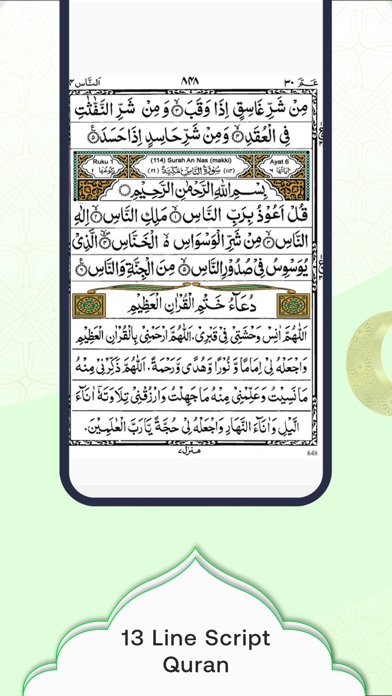 النَّاس ١١٤
٨٤٨
عَـمَّ ٣٠
مِنْ شَرِّ غَاسِقٍ إِذَا وَقَبَ ۝٣ وَمِنْ شَرِّ النَّفّٰثٰتِ
فِي الْعُقَدِ ۝٤ وَمِنْ شَرِّ حَاسِدٍ إِذَا حَسَدَ ۝٥
Ruku 1
(114) Surah An Nas (makki)
Ayat 6
بِسْمِ اللهِ الرَّحْمٰنِ الرَّحِيْمِ
قُلْ اَعُوْذُ بِرَبِّ النَّاسِ ۝١ مَلِكِ النَّاسِ ۝٢ اِلٰهِ
النَّاسِ ۝٣ مِنْ شَرِّ الْوَسْوَاسِ ەۙ الْخَنَّاسِ ۝٤ الَّذِيْ
يُوَسْوِسُ فِيْ صُدُوْرِ النَّاسِ ۝٥ مِنَ الْجِنَّةِ وَالنَّاسِ ۝٦
دُعَآءُ خَتْمِ الْقُرْاٰنِ الْعَظِيْمِ
اَللّٰهُمَّ اٰنِسْ وَحْشَتِيْ فِيْ قَبْرِيْ، اَللّٰهُمَّ ارْحَمْنِيْ بِالْقُرْاٰنِ الْعَظِيْمِ
وَاجْعَلْهُ لِيْ اِمَامًا وَّ نُوْرًا وَّهُدًى وَّرَحْمَةً، اَللّٰهُمَّ ذَكِّرْنِيْ مِنْهُ
مَا نَسِيْتُ وَعَلِّمْنِيْ مِنْهُ مَا جَهِلْتُ وَارْزُقْنِيْ تِلَاوَتَهٗٓ اٰنَآءَ
الَّيْلِ وَاٰنَآءَ النَّهَارِ وَاجْعَلْهُ لِيْ حُجَّةً يَّا رَبَّ الْعٰلَمِيْنَ.
منزل ٧
848
13 Line Script
Quran